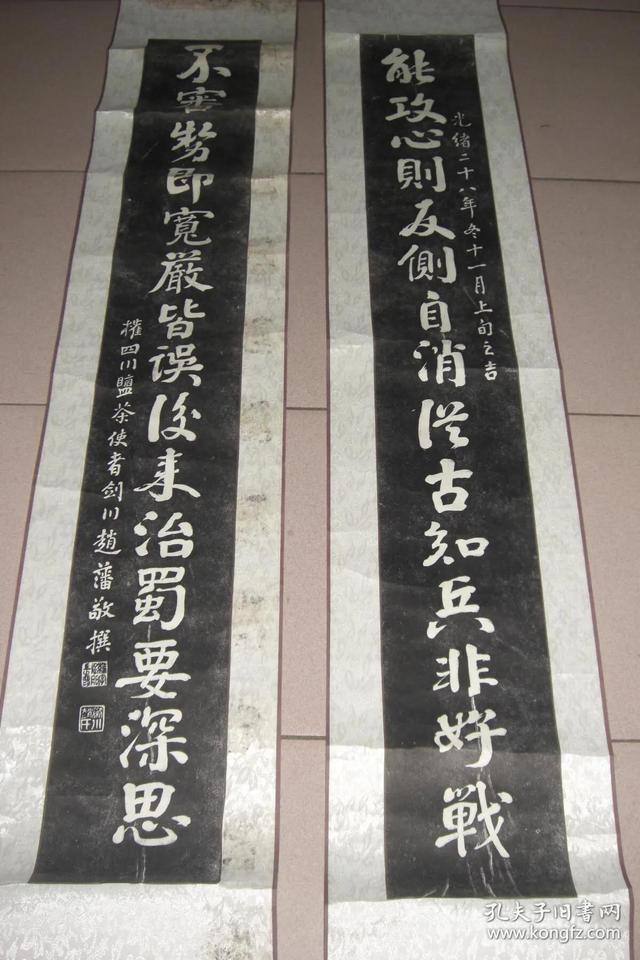 能攻心則反側自消從古知兵非好戰
光緒二十八年冬十一月上旬之吉
不審勢即寬嚴皆誤後來治蜀要深思
權四川鹽茶使者劍川趙藩敬撰
孔夫子旧书网
www.kongfz.com